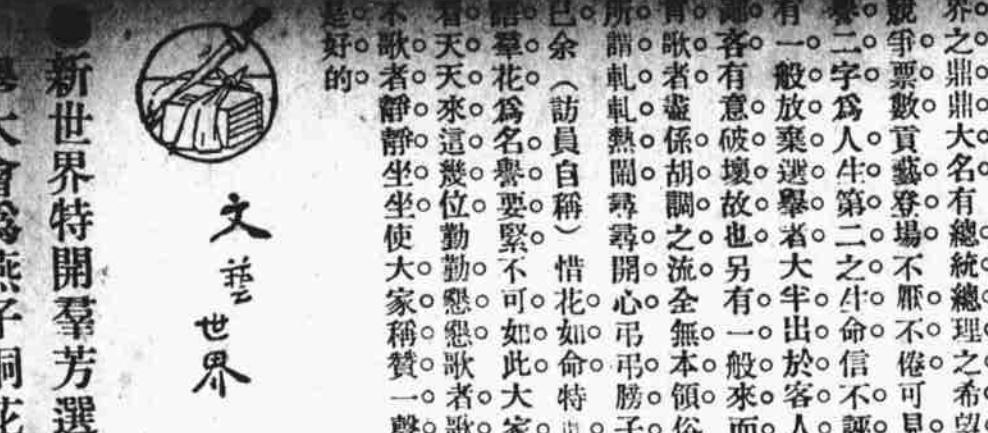 界之鼎鼎大名有總統總理之希望
競爭票數貢藝登場不厭不倦可見
譽二字爲人生第二之生命信不誣
有一般放棄選舉者大半出於客人
客有意破壞故也另有一般來而
歌者盡係胡調之流全無本領俗
所謂軋軋熱鬧尋尋開心弔弔膀子
已余（訪員自稱）惜花如命特
語羣花爲名譽要緊不可如此大家
看天天來這幾位勤勤懇懇歌者歌
不歌者靜靜坐坐使大家稱贊一聲
是好的
文藝世界
●新世界特開羣芳選
舉大會爲燕子桐花